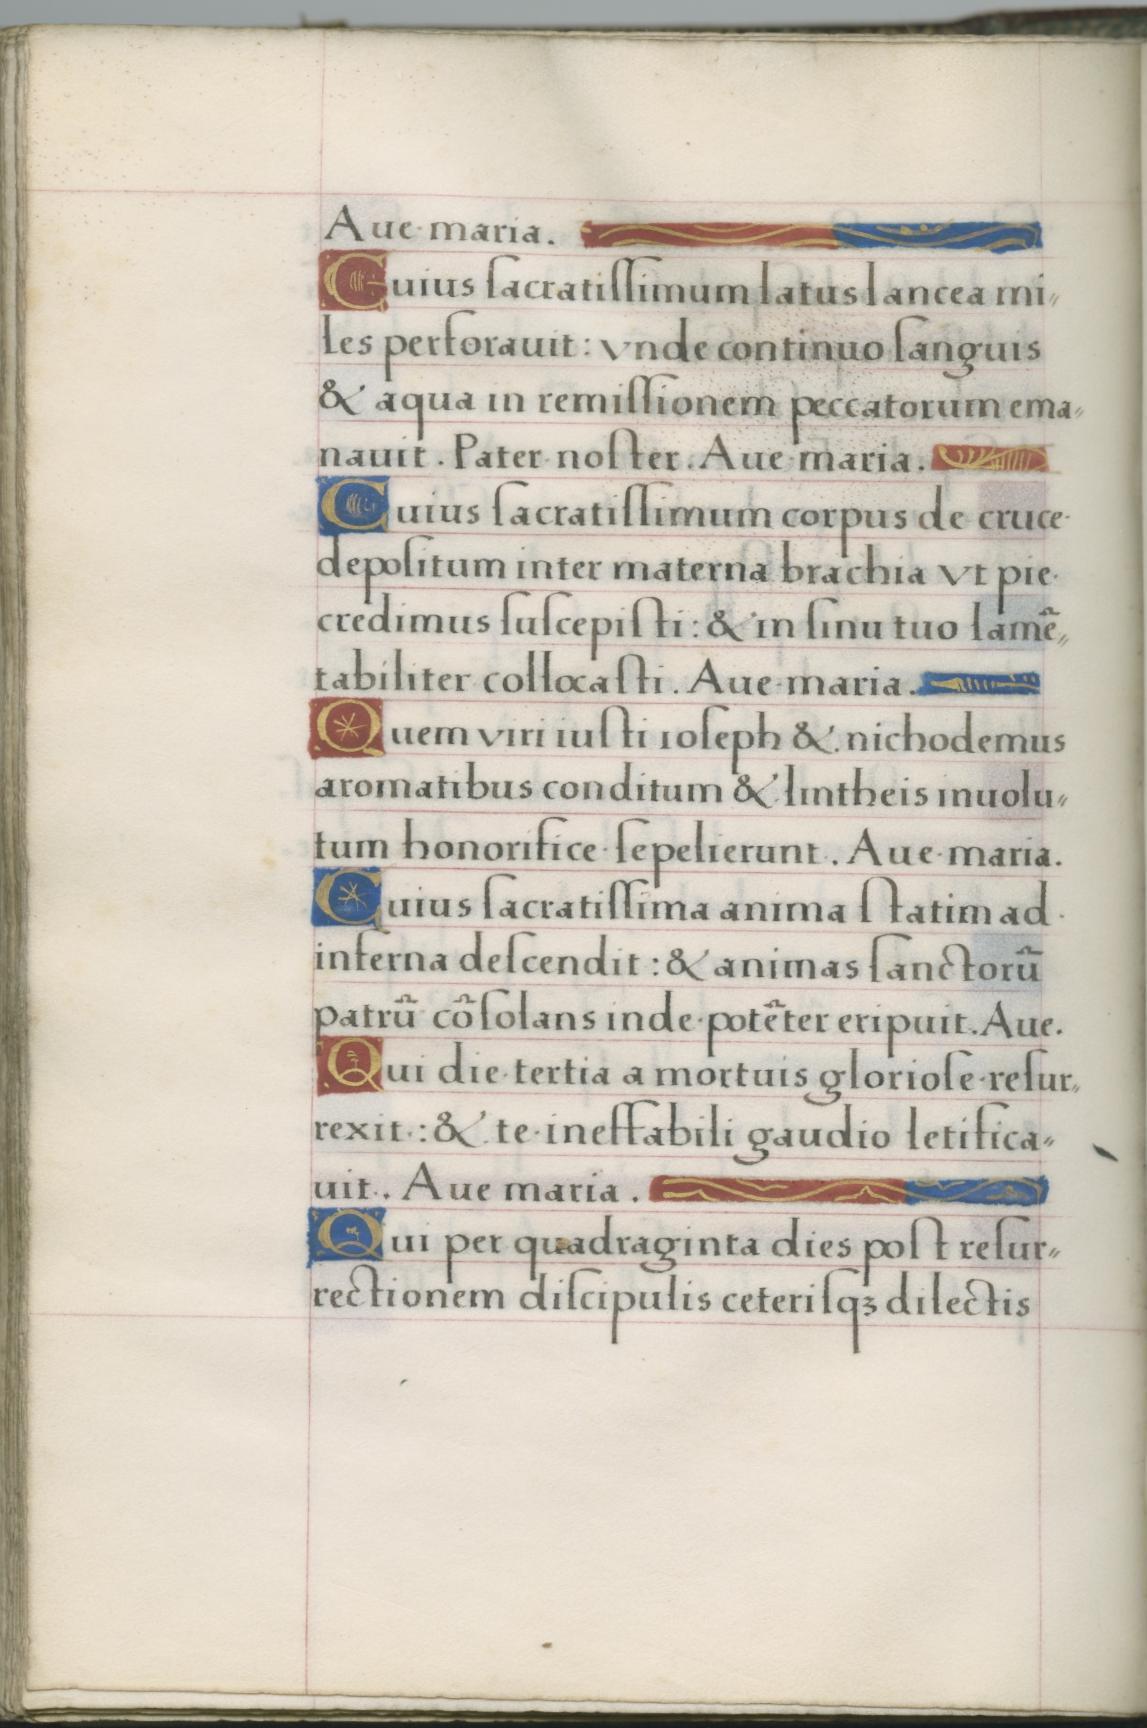 Aue maria.
Cuius ſacratiſſimum latus lancea mi„
les perforauit: vnde continuo ſanguis
& aqua in remiſſionem peccatorum ema„
nauit. Pater noſter. Aue maria.
Cuius ſacratiſſimum corpus de cruce
depoſitum inter materna brachia vt pie
credimus ſuſcepiſti: & in ſinu tuo lamẽ„
tabiliter collocaſti. Aue maria.
Quem viri iuſti ioſeph & nichodemus
aromatibus conditum & lintheis inuolu„
tum honorifice ſepelierunt. Aue maria.
Cuius ſacratiſſima anima ſtatim ad
inferna deſcendit: & animas ſanctorũ
patrũ cõſolans inde potẽter eripuit. Aue.
Qui die tertia a mortuis glorioſe reſur„
rexit: & te ineffabili gaudio letifica„
uit. Aue maria.
Qui per quadraginta dies poſt reſur„
rectionem diſcipulis ceteriſqꝫ dilectis